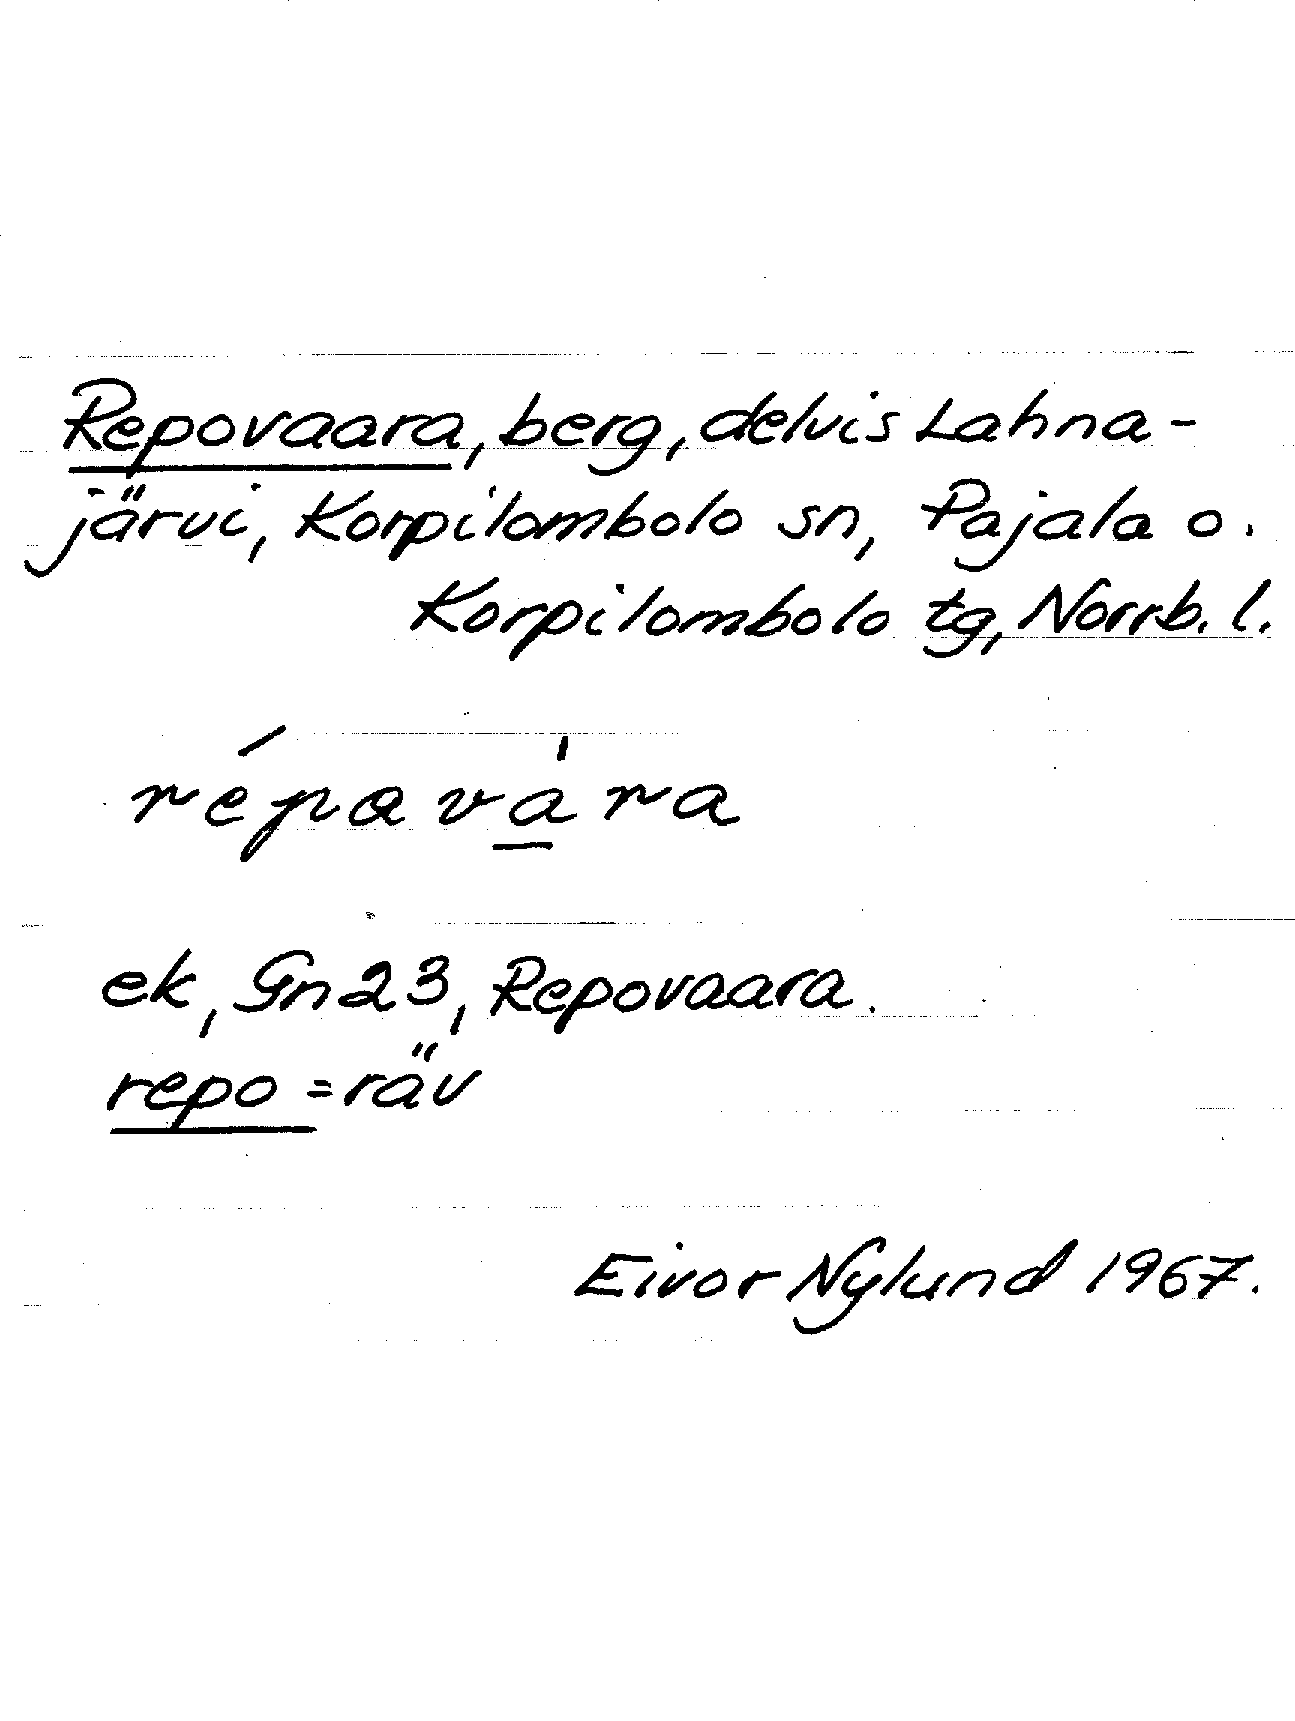 Repovaara, berg, delvis Lahna-
järvi, Korpilombolo sn, Pajala o.
Korpilombolo tg, Norrb. l.
répavára
ek, Gn23, Repovaara.
repo = räv
Eivor Nylund 1967.